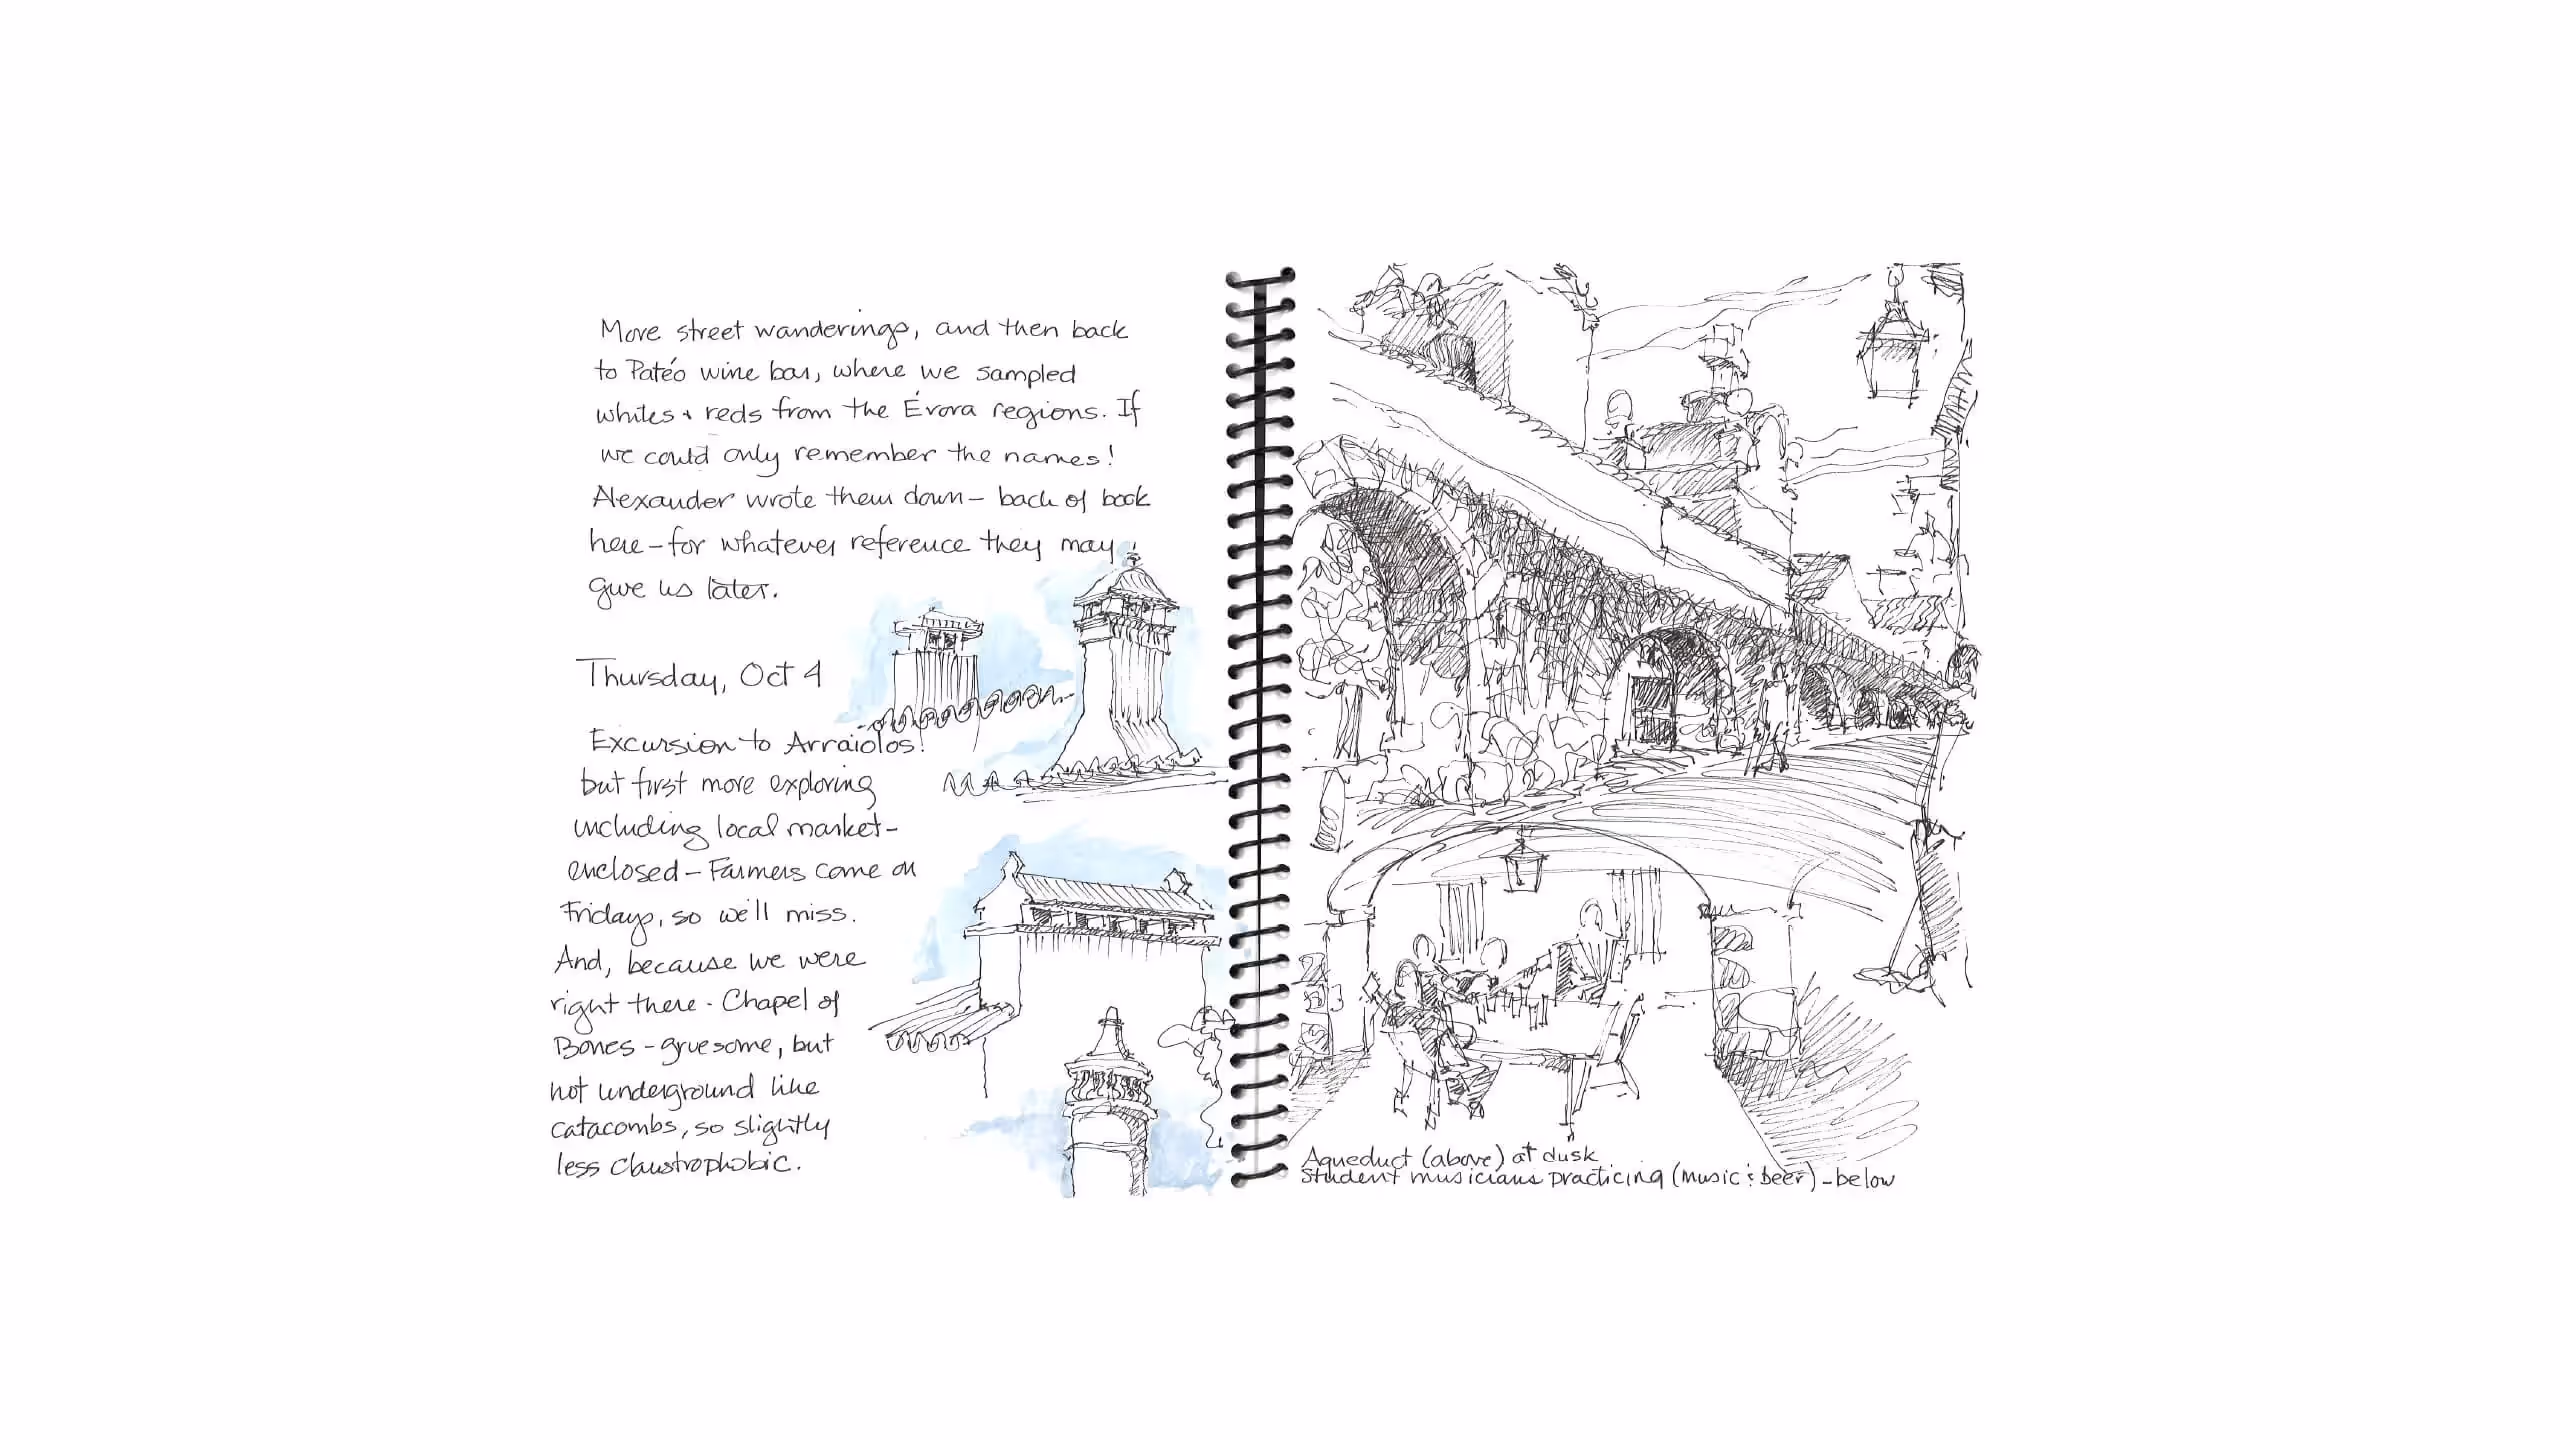 More street wanderings, and then back
to Patéo wine bar, where we sampled
whites + reds from the Évora regions. If
we could only remember the names!
Alexander wrote them down – back of book
here – for whatever reference they may
give us later.
Thursday, Oct 4
Excursion to Arraiolos!
but first more exploring
including local market –
enclosed – Farmers come on
Fridays, so we'll miss.
And, because we were
right there - Chapel of
Bones – gruesome, but
not underground like
catacombs, so slightly
less claustrophobic.
Aqueduct (above) at dusk
Student musicians practicing (music & beer) – below